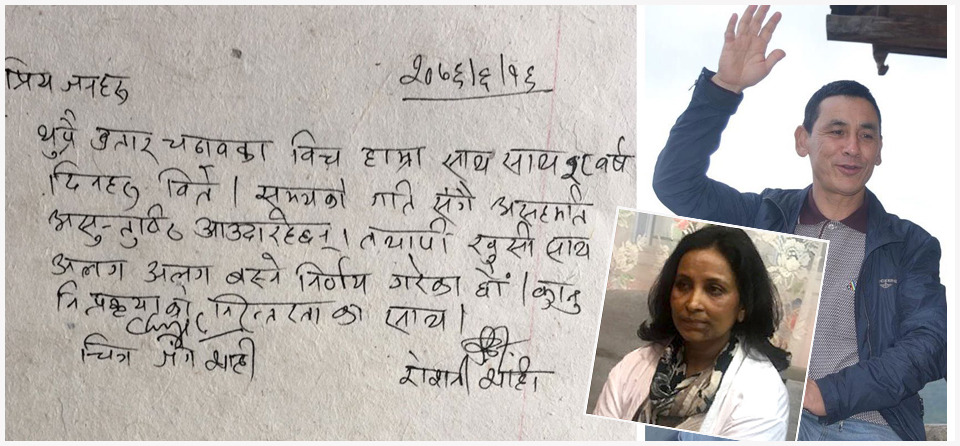 २०७६/६/१६
प्रिय जनहरु
थुप्रै उतार चढावका विच हाम्रा साथ साथ १८ वर्ष
दिनहरु विते । समयको गति संगै असहमति
असन्तुष्ठि आउदारहेछन् । तथापी खुसी साथ
अलग अलग बस्ने निर्णय गरेका छौं । कानु
नि प्रकृयाका निरन्तरताका साथ ।
चित्र जंग शाही
शाही